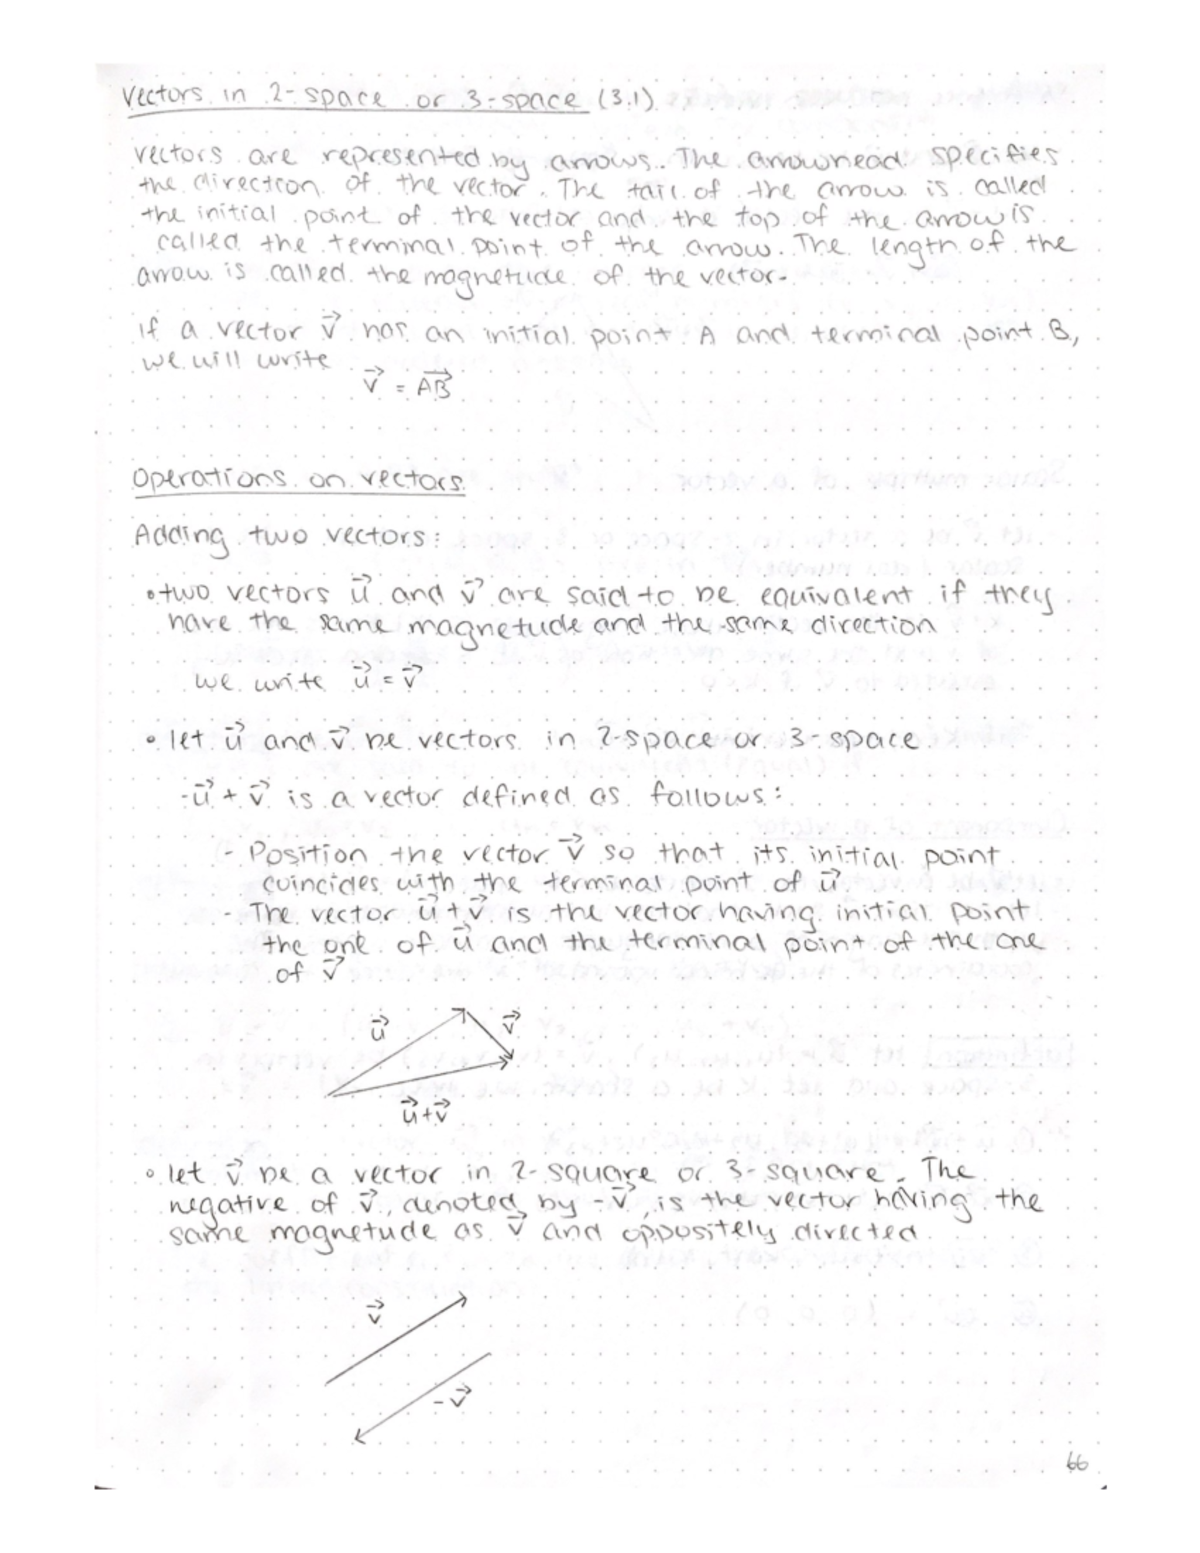 Vectors in 2-space or 3-space (3.1)
Vectors are represented by arrows. The arrowhead specifies
the direction of the vector. The tail of the arrow is called
the initial point of the vector and the top of the arrow is
called the terminal point of the arrow. The length of the
arrow is called the magnetude of the vector.
If a vector v⃗ has an initial point A and terminal point B,
we will write
v⃗ = A⃗B⃗
Operations on vectors
Adding two vectors:
• two vectors u⃗ and v⃗ are said to be equivalent if they
have the same magnetude and the same direction
we write u⃗ = v⃗
• let u⃗ and v⃗ be vectors in 2-space or 3-space
- u⃗ + v⃗ is a vector defined as follows:
- Position the vector v⃗ so that its initial point
coincides with the terminal point of u⃗
- The vector u⃗ + v⃗ is the vector having initial point
the one of u⃗ and the terminal point of the one
of v⃗
u⃗ v⃗
u⃗ + v⃗
• let v⃗ be a vector in 2-square or 3-square. The
negative of v⃗, denoted by -v⃗, is the vector having the
same magnetude as v⃗ and oppositely directed
v⃗
- v⃗
66